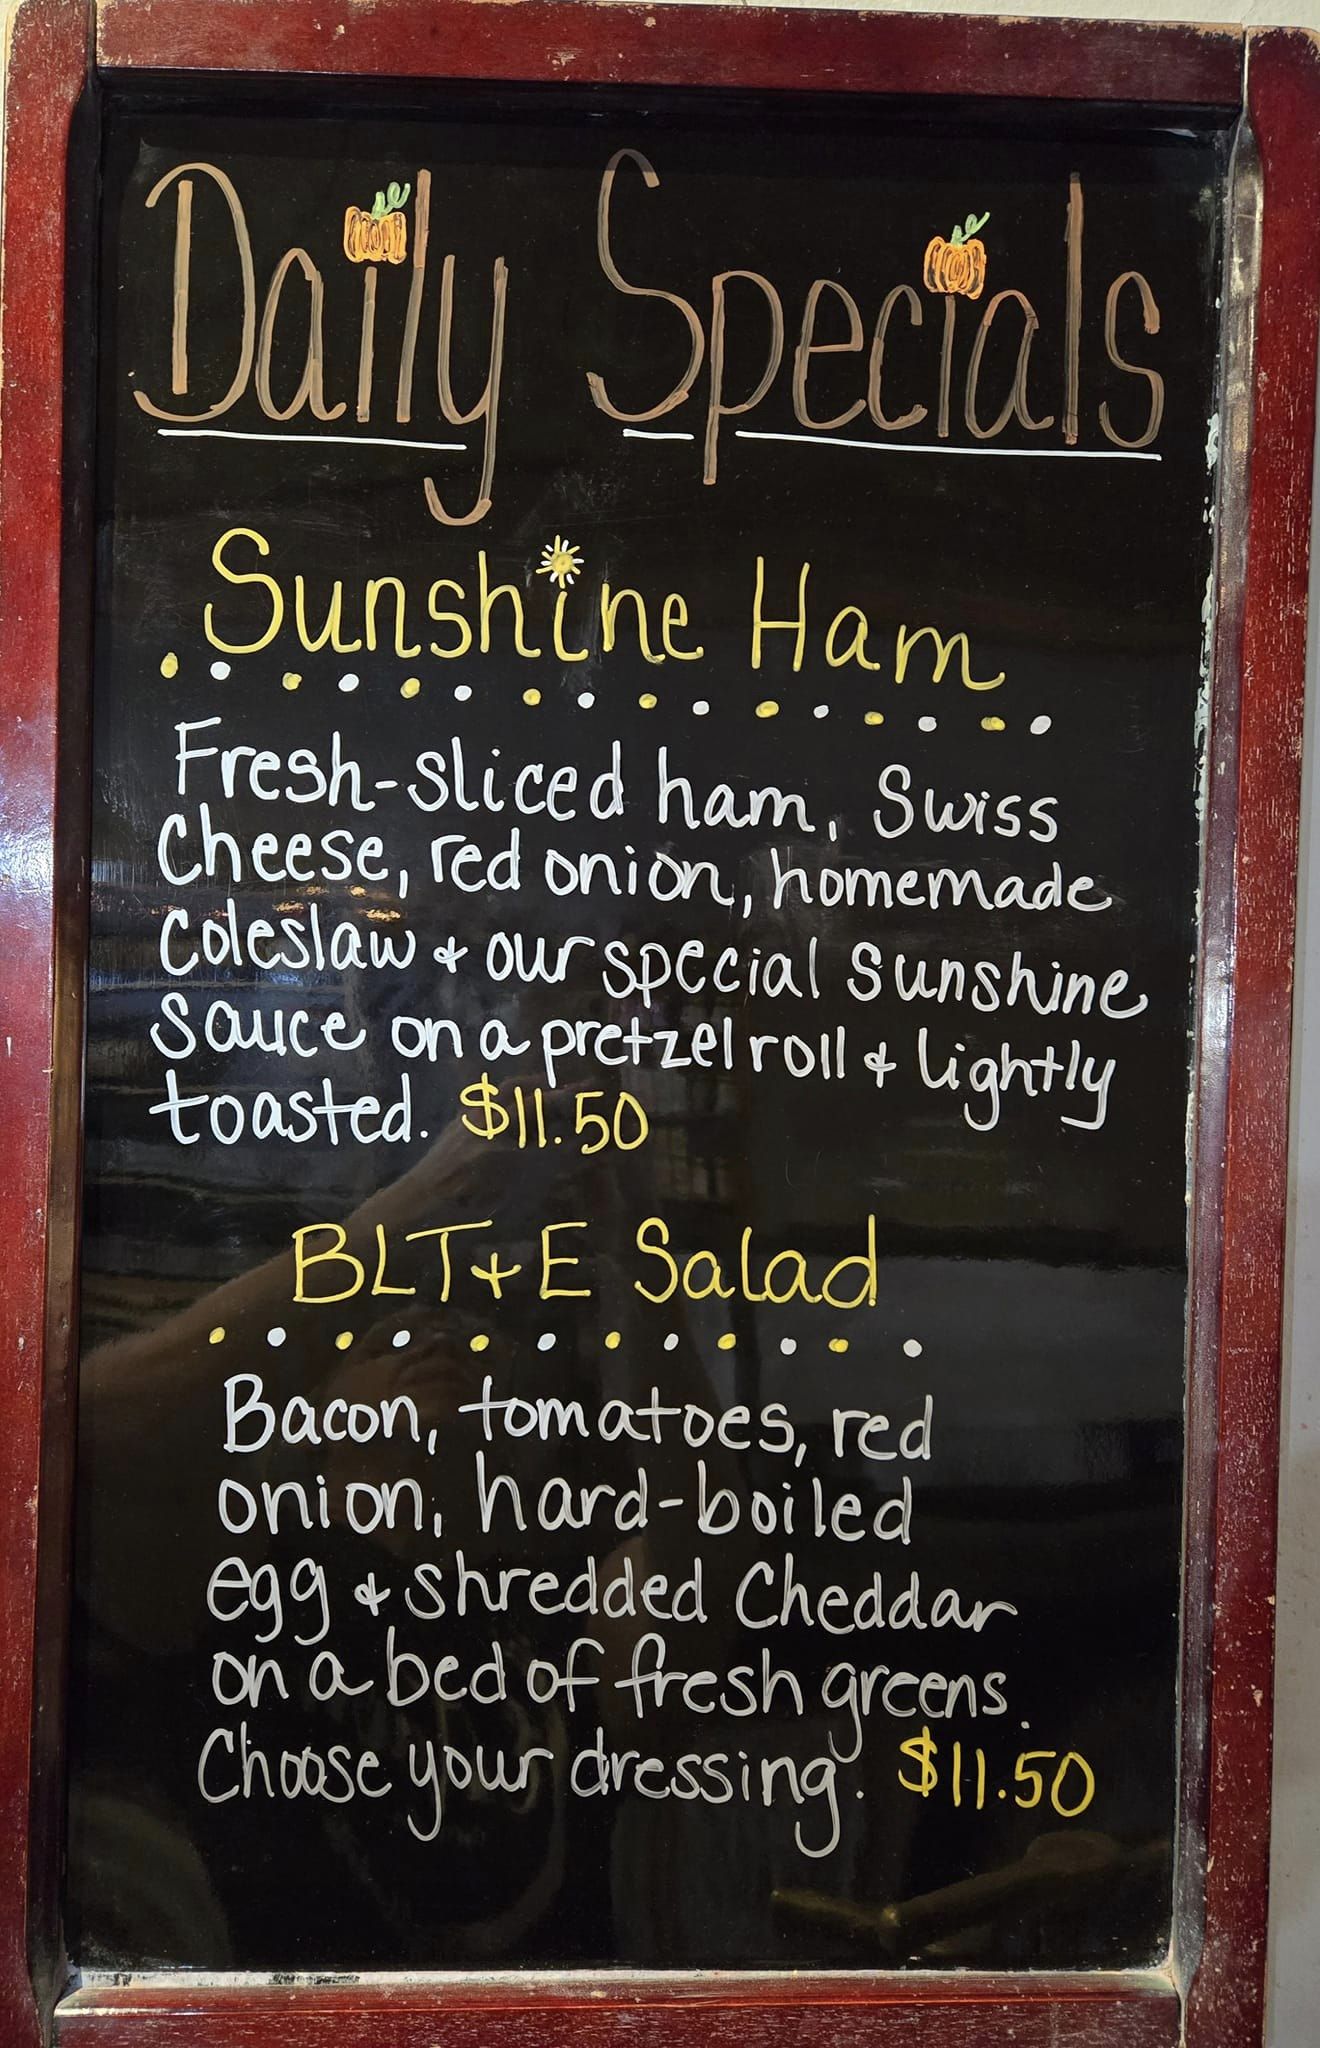 Daily Specials
Sunshine Ham
Fresh-sliced ham, Swiss
Cheese, red onion, homemade
Coleslaw & our special Sunshine
Sauce on a pretzel roll & lightly
toasted. $11.50
BLT+E Salad
Bacon, tomatoes, red
onion, hard-boiled
egg & shredded Cheddar
on a bed of fresh greens.
Choose your dressing. $11.50